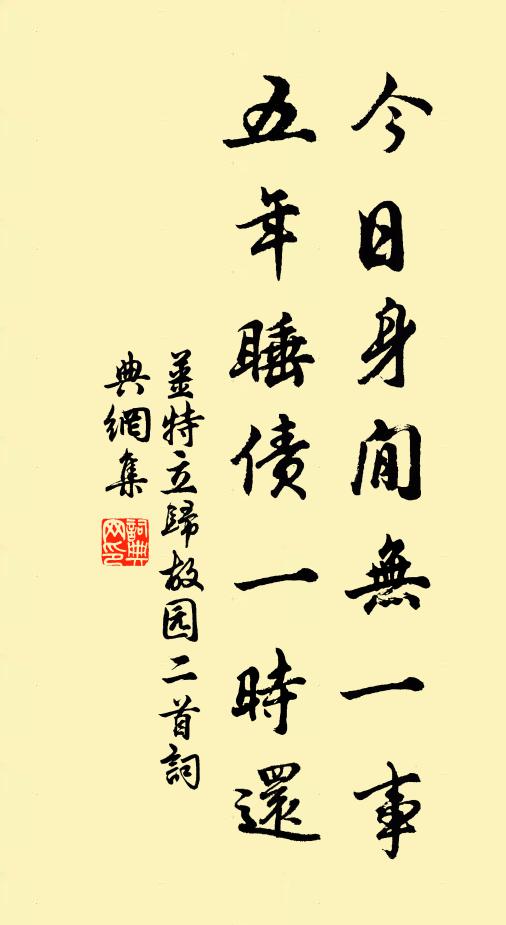 今日身閒無一事
五年睡債一時還
姜特立歸故园二首詞
典網集
詞典
网印